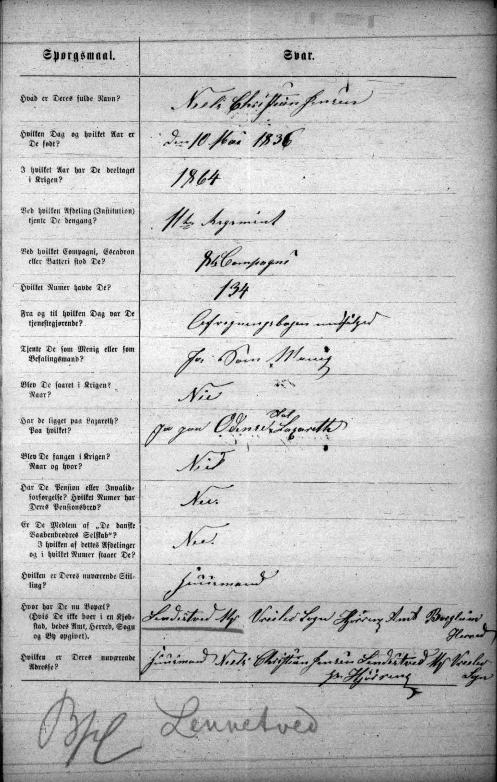 Spørgsmaal.
Svar.
Hvad er Deres fulde Navn?
Niels Christian Jensen
Hvilken Dag og hvilket Aar er
De født?
den 10 Mai 1836
I hvilket Aar har De deeltaget
i Krigen?
1864
Ved hvilken Afdeling (Institution)
tjente De dengang?
11te Regiment
Ved hvilket Compagni, Escadron
eller Batteri stod De?
8de Compagni
Hvilket Numer havde De?
134
Fra og til hvilken Dag var De
tjenestgjørende?
Afregningsbogen
Tjente De som Menig eller som
Befalingsmand?
Ja Som Menig
Blev De saaret i Krigen?
Naar?
Nei
Har de ligget paa Lazareth?
Paa hvilket?
ja paa Odense Lazareth
Blev De fangen i Krigen?
Naar og hvor?
Nei
Har De Pension eller Invalid-
forsørgelse? Hvilket Numer har
Deres Pensionsbrev?
Nei.
Er De Medlem af „De danske
Vaabenbrødres Selskab"?
I hvilken af dettes Afdelinger
og i hvilket Numer staaer De?
Nei.
Hvilken er Deres nuværende Stil-
ling?
Huusmand
Hvor har De nu Bopæl?
(Hvis De ikke boer i en Kjøb-
stad, bedes Amt, Herred, Sogn
og By opgivet).
Lendestved Vreilev Sogn Hjøring Amt Børglum
Herred
Hvilken er Deres nuværende
Adresse?
Huusmand Niels Christian Jensen Lendestved Vreilev
Sogn
pr Hjøring
Lennetved